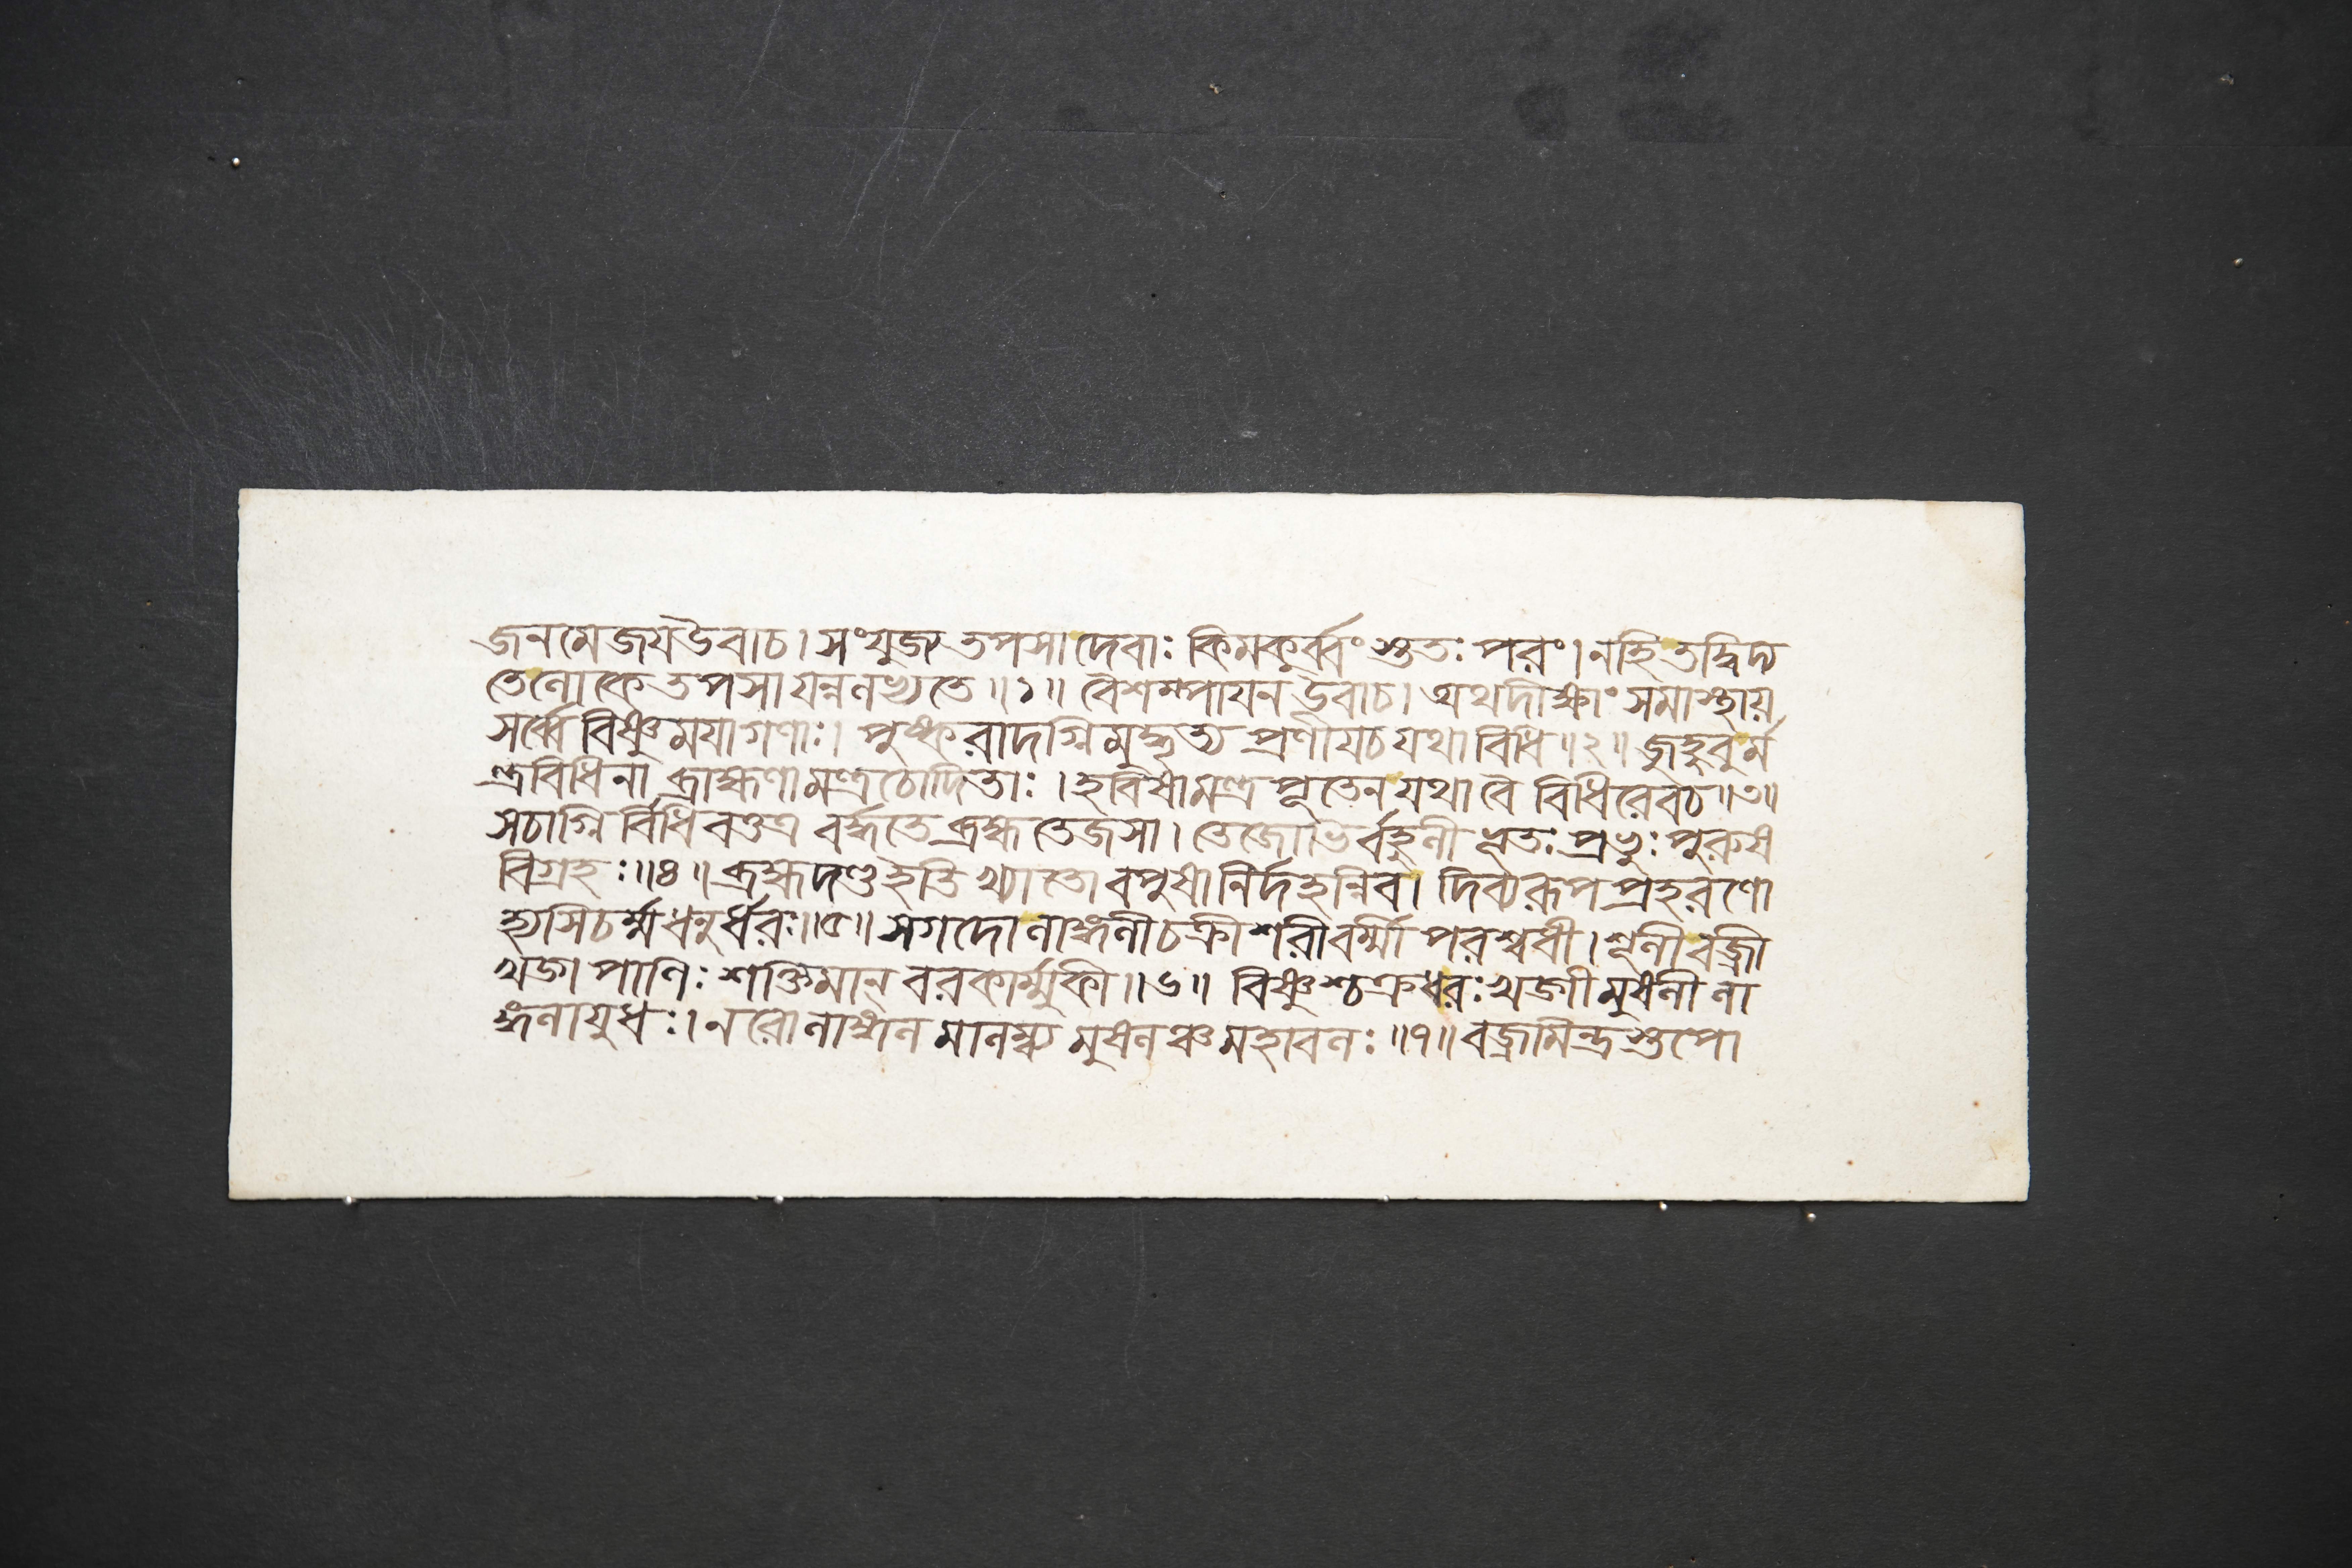 জনমেজযউবাচ। সংযুজ্য তপসা দেবাঃ কিমকুর্ব্বংস্তুতঃ পরং। নহি তদ্বিদ্য
তেলোকে তপসা যন্নলভ্যতে॥১॥ বৈশম্পাযন উবাচ। অথদীক্ষাং সমাস্থায়
সর্ব্বে বিষ্ণুমযাগণাঃ। পুষ্করাদগ্নিমুদ্ধৃত্য প্রণীযচ যথা বিধি॥২॥ জুহুবুর্ম
ন্ত্রবিধিনা ব্রাহ্মণামন্ত্রচোদিতাঃ। হবিষামন্ত্র পূতেন যথা বৈ বিধিরেবচ॥৩॥
সচাগ্নি র্বিধিবত্তত্র বর্দ্ধতে ব্রহ্ম তেজসা। তেজোভির্বহুলী ভূতঃ প্রভুঃ পুরুষ
বিগ্রহঃ॥৪॥ ব্রহ্মদণ্ড ইতি খ্যাতো বপুষা নির্দহন্নিব। দিব্যরূপ প্রহরণো
হ্যসিচর্ম্ম ধনুর্ধরঃ॥৫॥ সগদোলাঙ্গলীচক্রী শরীবর্ম্মী পরশ্বধী। শূলীবজ্রী
খড়্গ পাণিঃ শক্তিমান্ বরকার্ম্মুকী॥৬॥ বিষ্ণুশ্চক্রধরঃ খড়্গী মুষলী লা
ঙ্গলাযুধঃ। নরোলাঙ্গল মালম্ব্য মুষলঞ্চ মহাবলঃ॥৭॥ বজ্রমিন্দ্রস্তুপো